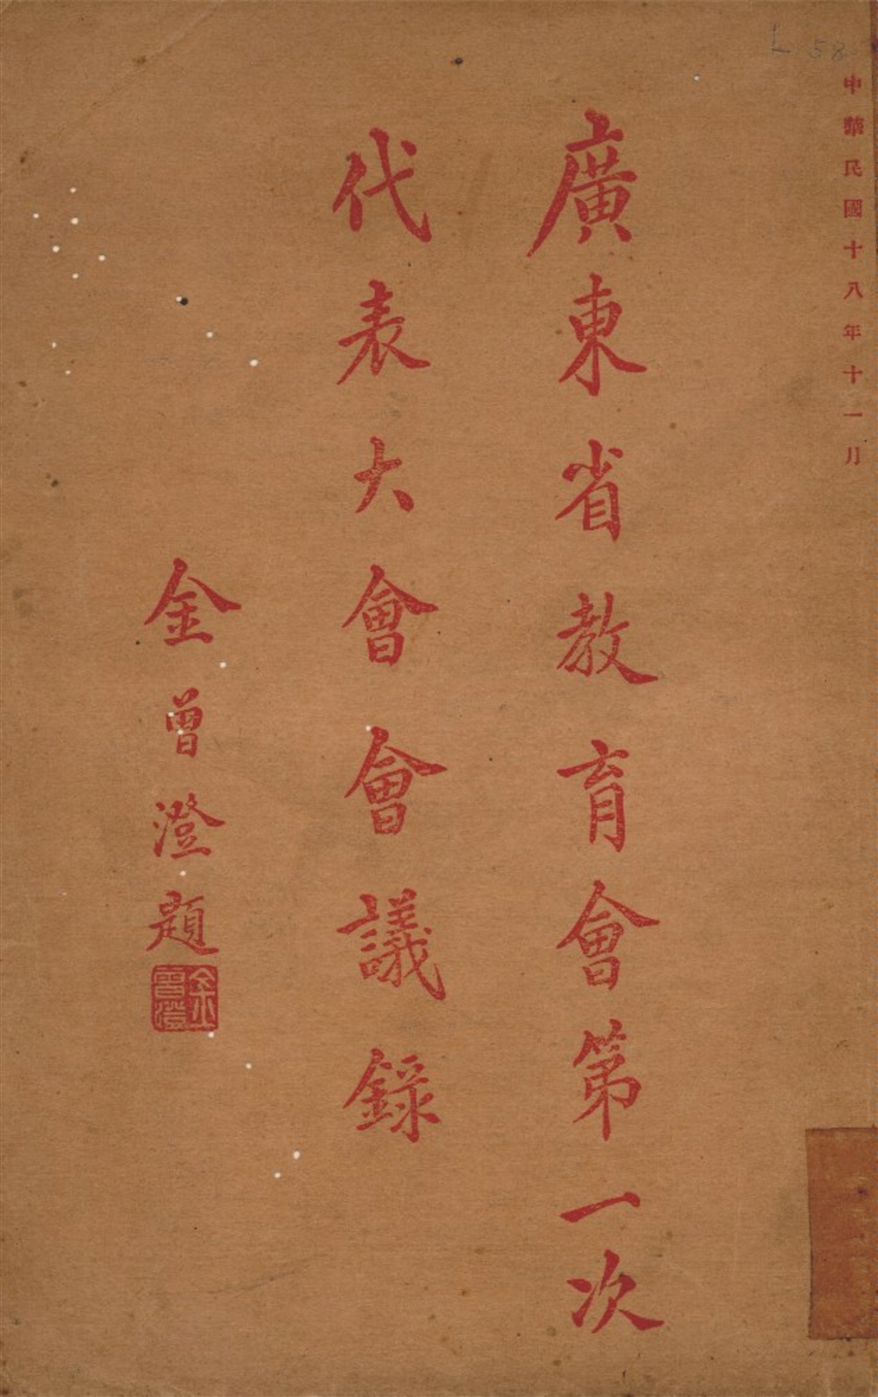 L 58
中華民國十八年十一月
廣東省教育會第一次
代表大會會議錄
金曾澄題
金曾澄